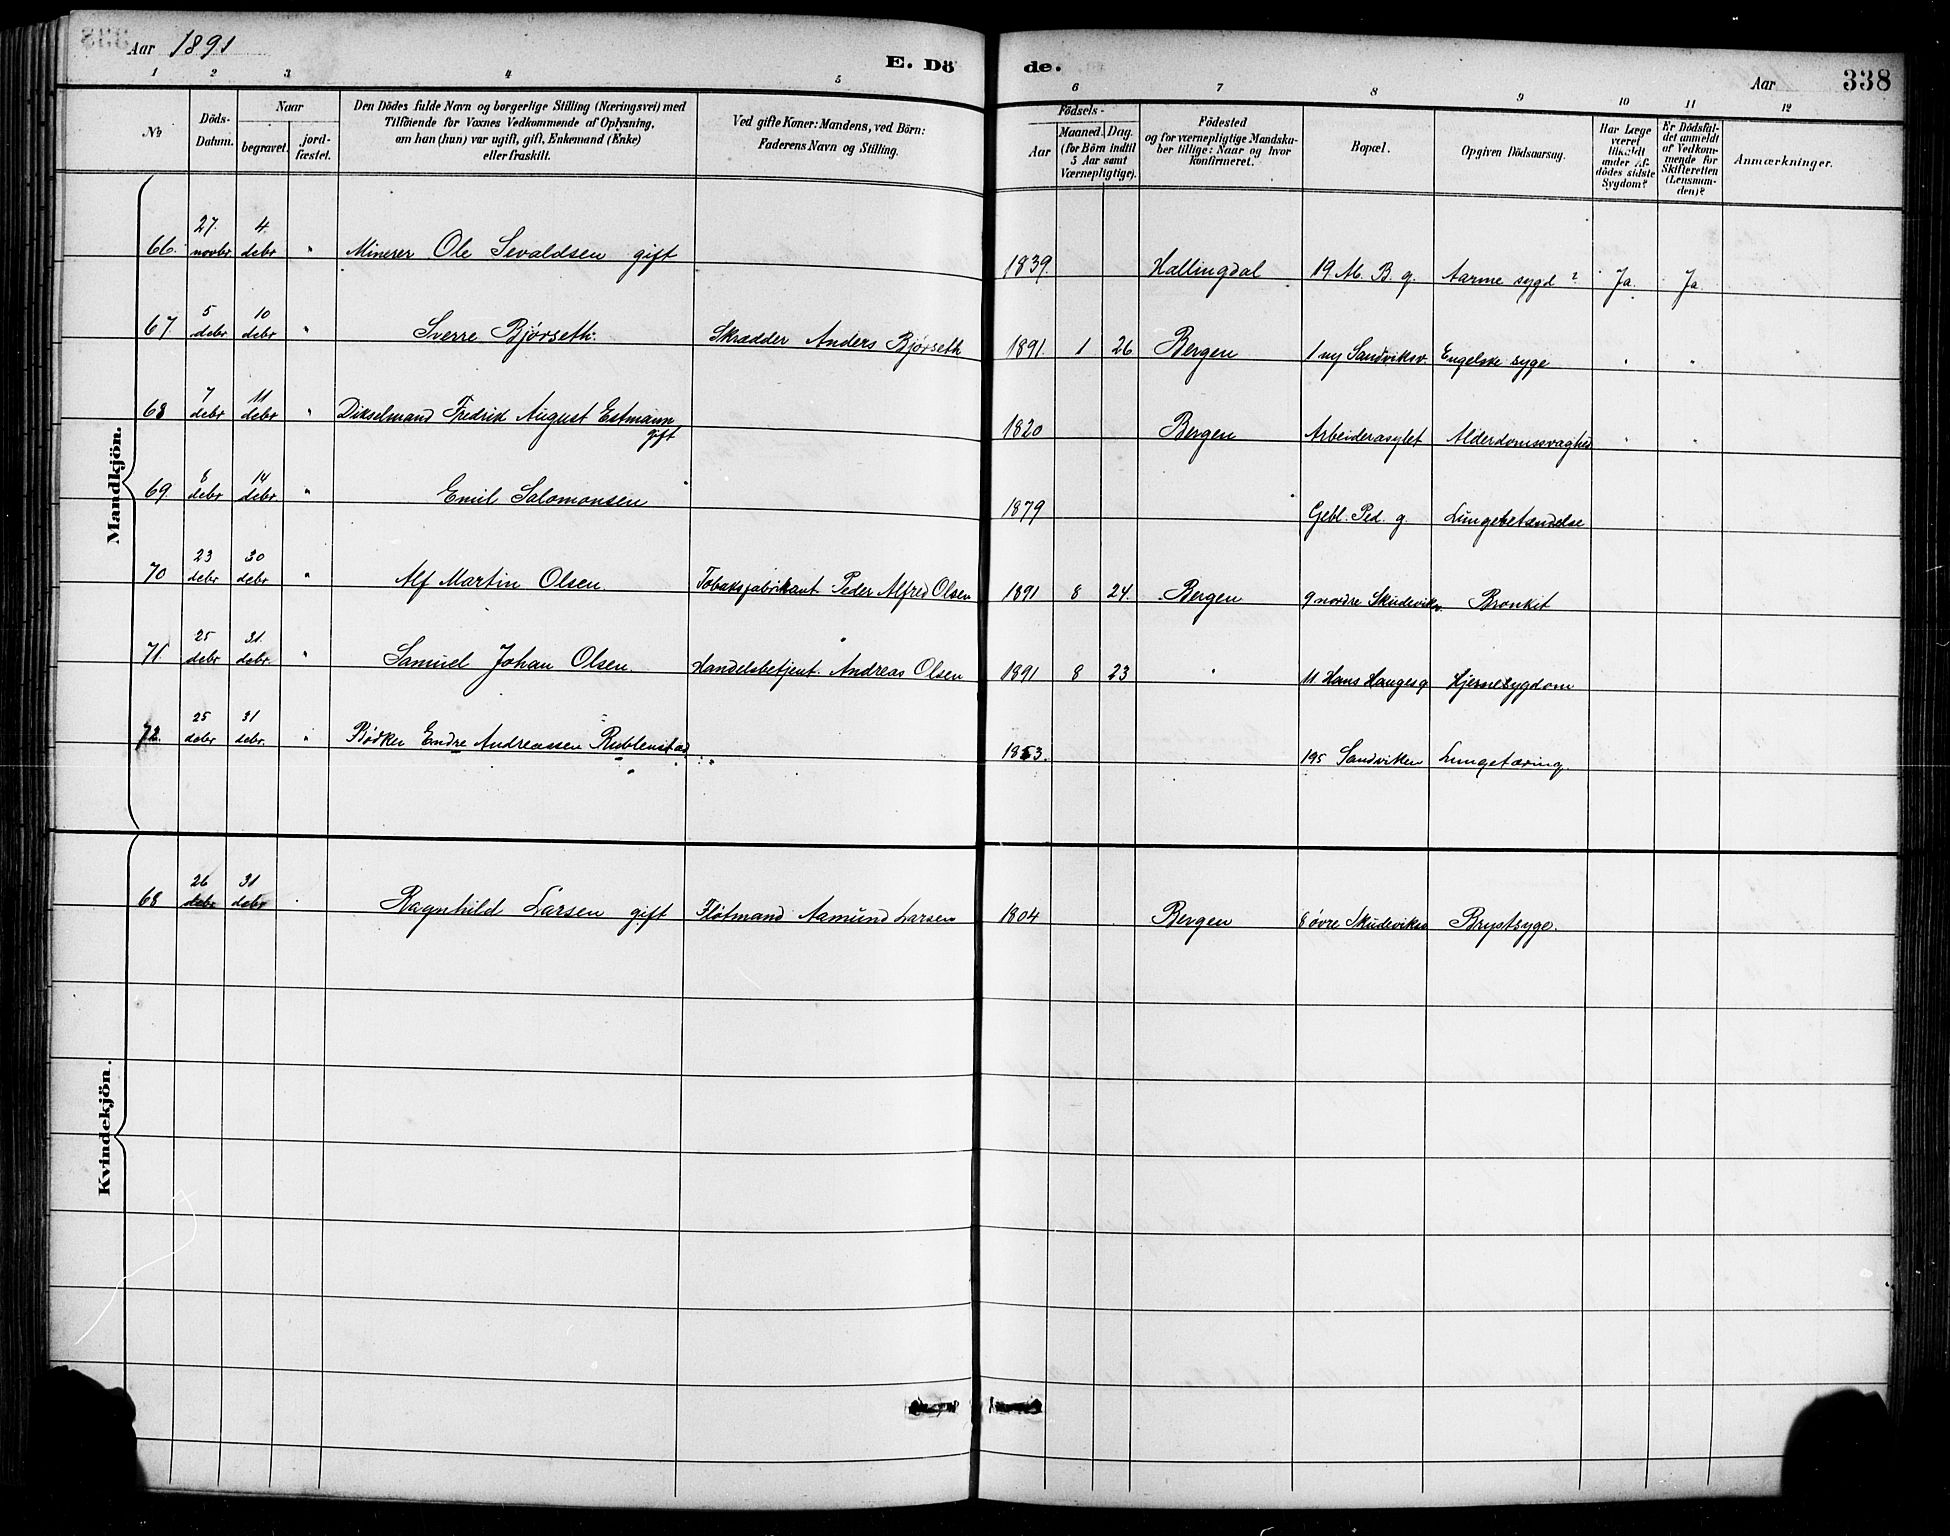 Aar 1891
E. Dö
de.
Aar
338
1 2 3 4 5 6 7 8 9 10 11 12
№
Döds-
Datum.
Naar
begravet.
jord-
fæstet.
Den Dödes fulde Navn og borgerlige Stilling (Næringsvei) med
Tilföiende for Voxnes Vedkommende af Oplysning,
om han (hun) var ugift, gift, Enkemand (Enke)
eller fraskilt.
Ved gifte Koner: Mandens, ved Börn:
Faderens Navn og Stilling.
Födsels-
Aar
Maaned. Dag.
(for Börn indtil
5 Aar samt
Værnepligtige).
Födested
og for værnepligtige Mandska-
ber tillige: Naar og hvor
konfirmeret.
Bopæl.
Opgiven Dödsaarsag.
Har Læge
været
tilkaldt
under Af-
dödes sidste
Sygdom?
Er Dödsfal-
det anmeldt
af Vedkom-
mende for
Skifteretten
(Lensman-
den)?
Anmærkninger.
Mandkjön.
66. 27. novbr. 4. debr " Minerer Ole Sevaldsen gift 1839. Hallingdal 19 M. B. g. sygd ? Ja. Ja
67. 5 debr 10 debr " Sverre Bjørseth. Skrædder Anders Bjørseth 1891. 1 26 Bergen 1 ny Sandviksv. Engelske syge " "
68 7 debr 11 debr " Fredrik August Estmann gift 1820 Bergen Arbeiderasylet Alderdomssvaghed " "
69 8 debr 14 debr " Emil Salomonsen 1879 Gebl. Ped. g. Lungebetændelse
70 23 debr 30 debr " Alf Martin Olsen. Tobaksfabrikant Peder Alfred Olsen 1891 8 24. Bergen 9 nordre Skudeviksv. Bronkit
71. 25 debr 31. debr. " Samuel Johan Olsen. Handelsbetjent. Andreas Olsen 1891 8 23 " 11 Hans Haugesg Hjernesygdom
72. 25 debr 31 debr. " Bødker Endre Andreassen 1853. 195 Sandviken Lungetæring.
Kvindekjön.
68 26 debr 31 debr Ragnhild Larsen gift Fløtmand Aamund Larsen 1804 Bergen 8 øvre Skudeviksv Brystsyge.